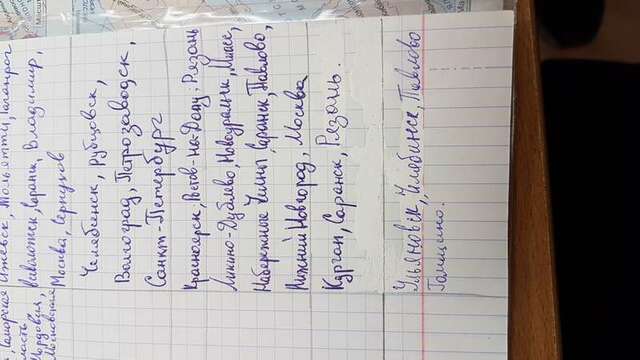 Самарская Ижевск, Тольятти, Таганрог
ласть
Мордовия, Саранск, Владимир,
Московская Москва, Серпухов
Челябинск, Рубцовск,
Волгоград, Петрозаводск,
Санкт-Петербург
Красноярск, Ростов-на-Дону, Рязань
Ликино-Дулево, Новоуральск, Миасс,
Набережные Челны, Саранск, Павлово,
Нижний Новгород, Москва
Курган, Саранск, Рязань.
Ульяновск, Челябинск, Павлово